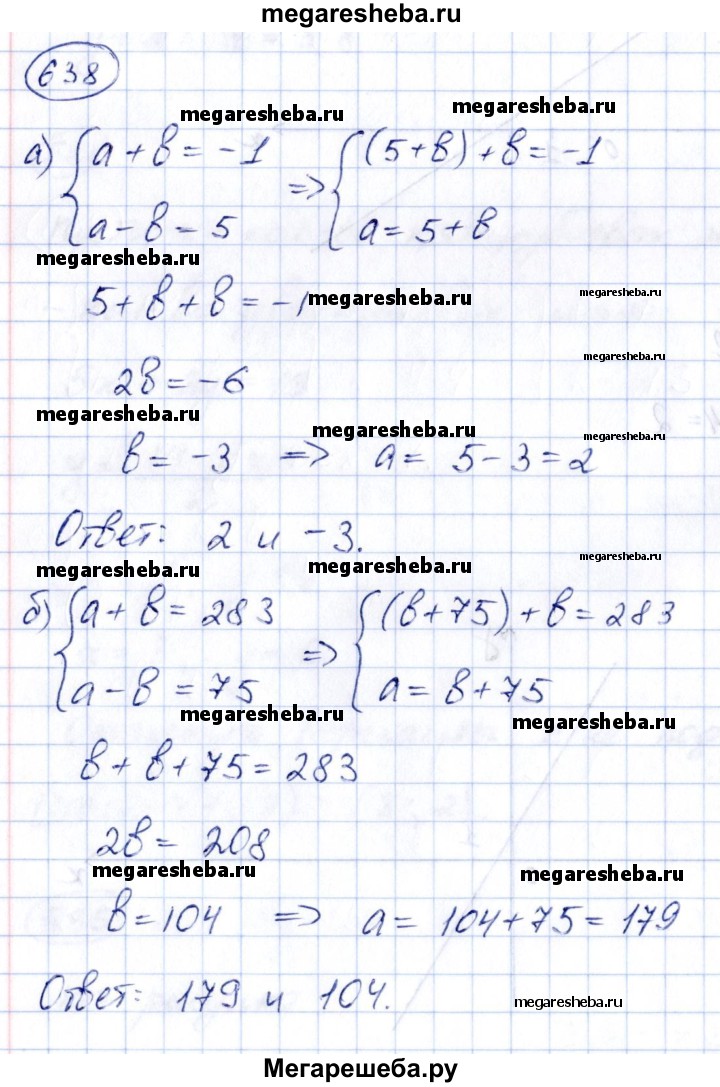 megaresheba.ru
638
megaresheba.ru megaresheba.ru
а) { a + b = -1 => { (5+b) + b = -1
a - b = 5 a = 5 + b
megaresheba.ru
5 + b + b = -1 megaresheba.ru megaresheba.ru
megaresheba.ru
2b = -6
megaresheba.ru megaresheba.ru megaresheba.ru
b = -3 => a = 5 - 3 = 2
Ответ: 2 и -3.
megaresheba.ru megaresheba.ru megaresheba.ru
б) { a + b = 283 => { (b+75) + b = 283
a - b = 75 a = b + 75
megaresheba.ru megaresheba.ru
b + b + 75 = 283
2b = 208
megaresheba.ru megaresheba.ru
b = 104 => a = 104 + 75 = 179
Ответ: 179 и 104.
megaresheba.ru
Мегарешеба.ру